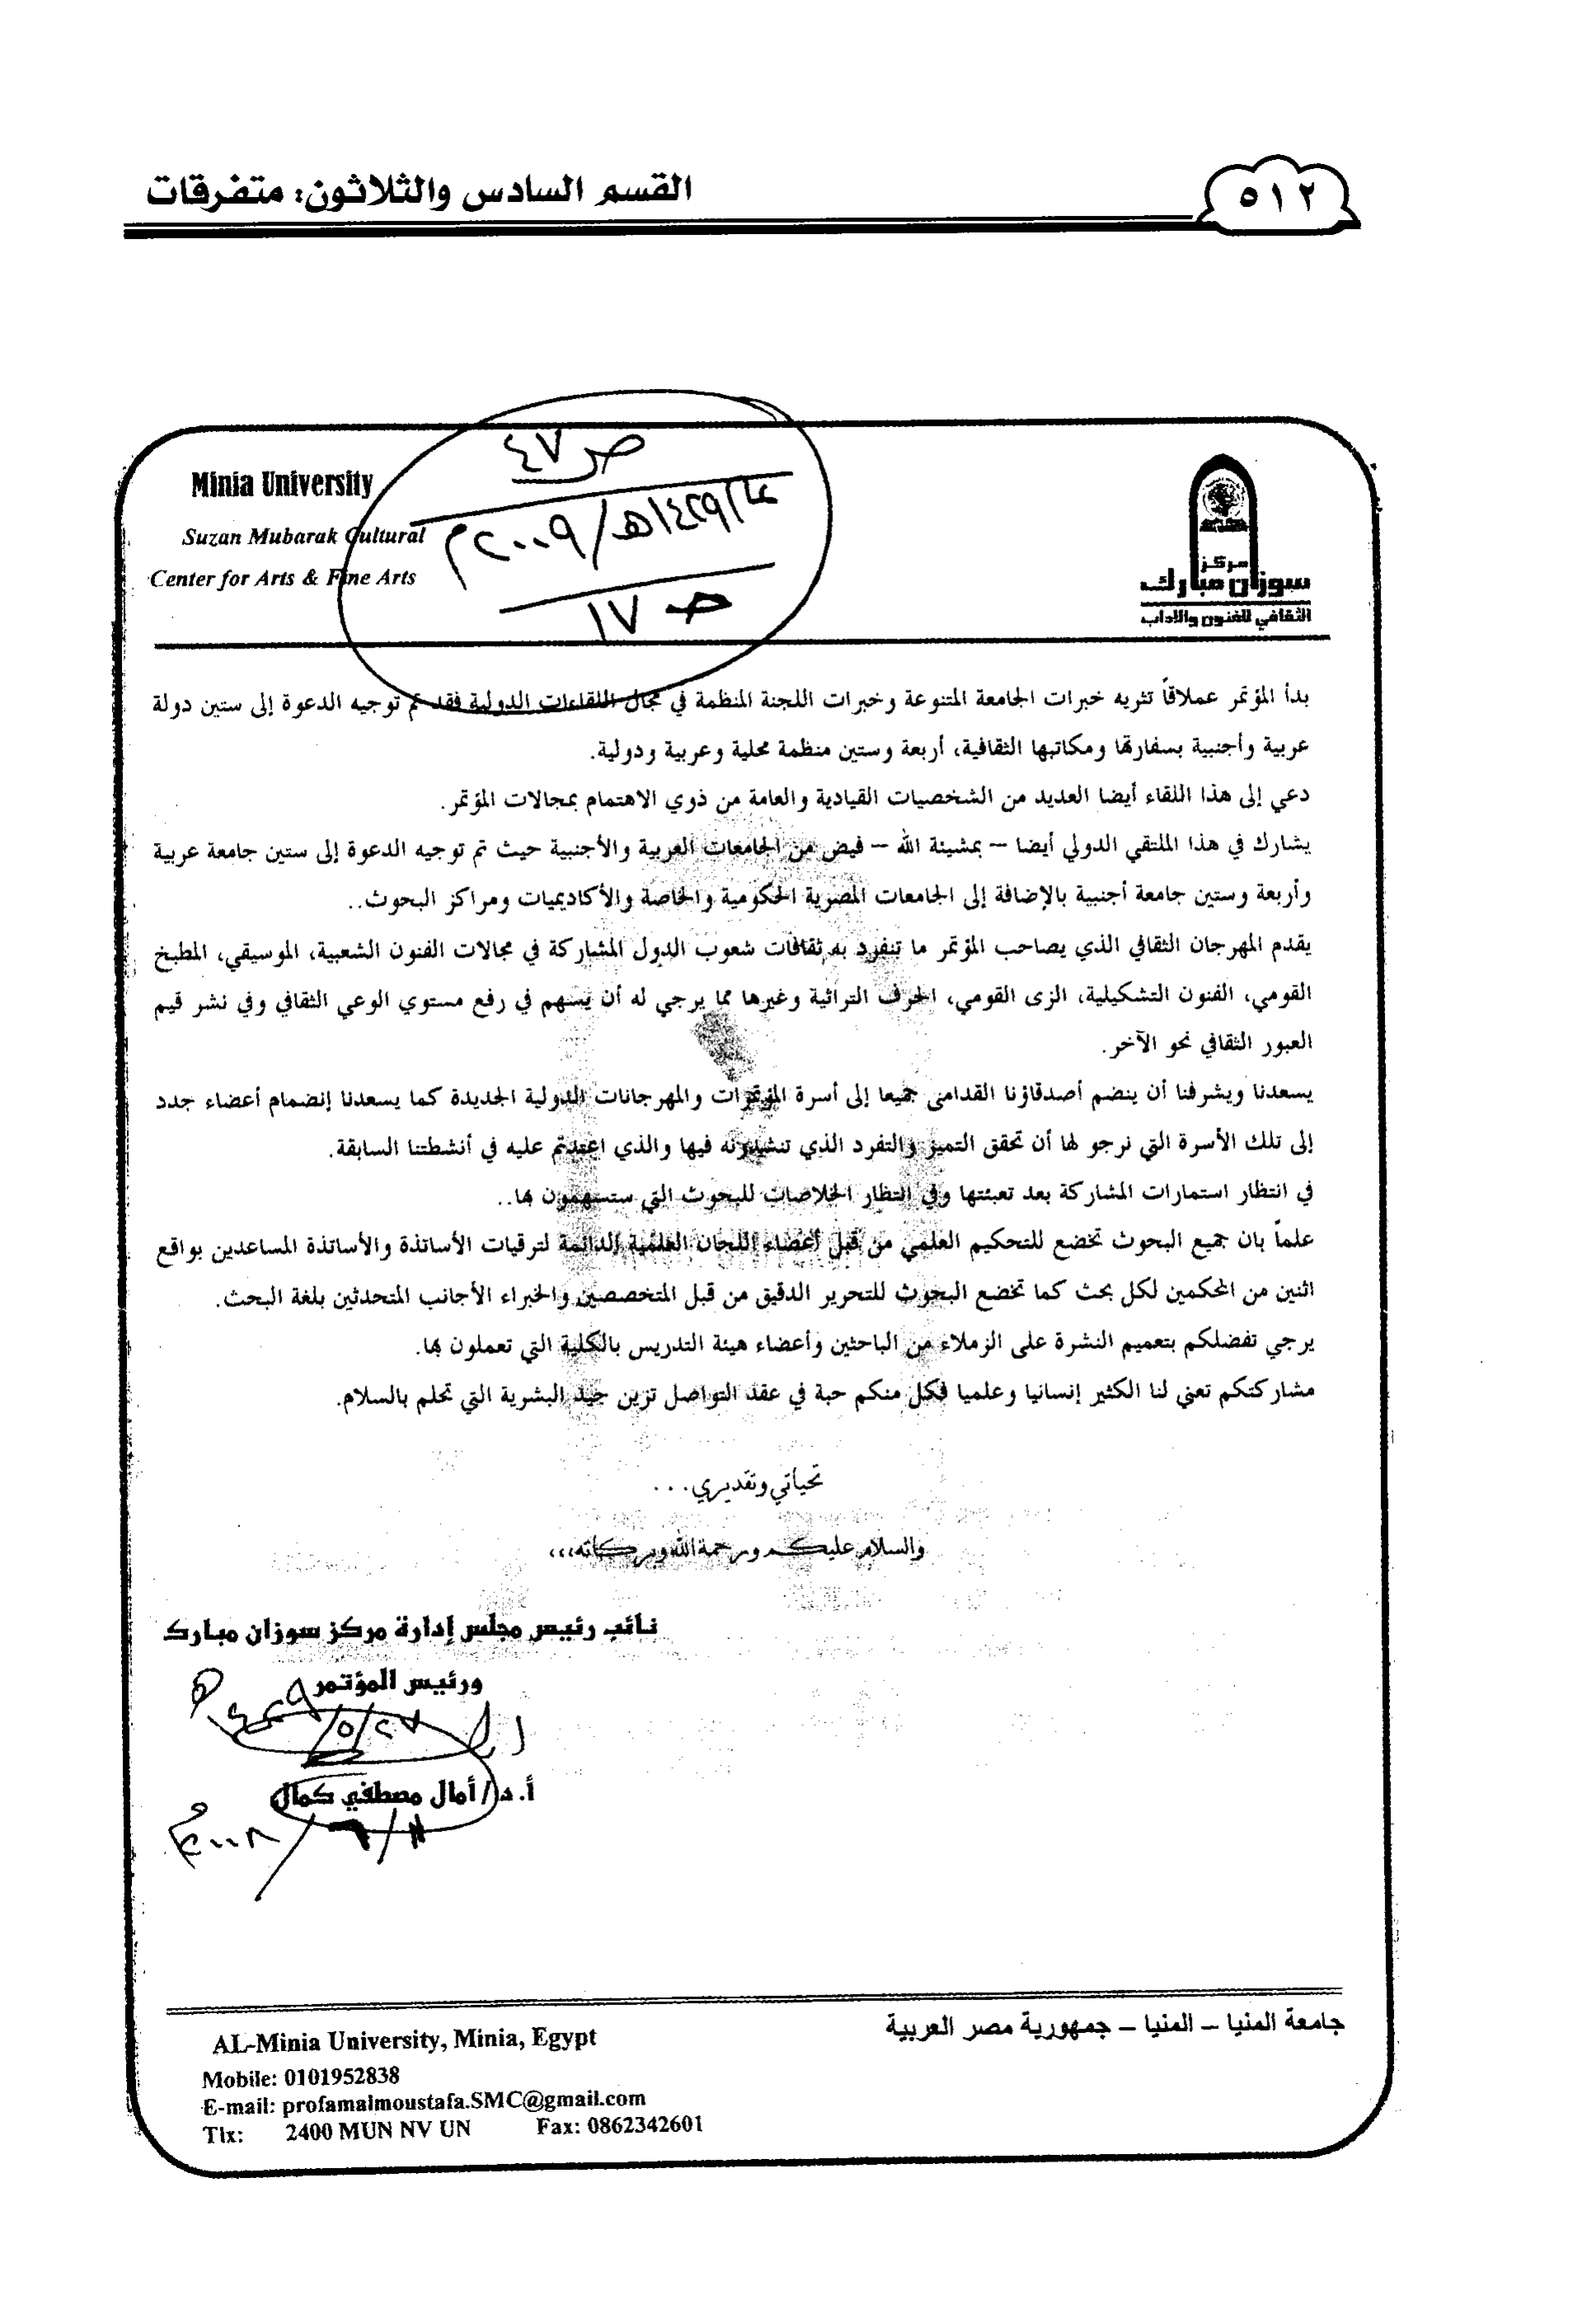 القسم السادس والثلاثون: متفرقات
٥١٢
Minia University
Suzan Mubarak Cultural
Center for Arts & Fine Arts
ص ٤٧
١٧
مركز
سوزان مبارك
الثقافي للفنون والآداب
بدأ المؤتمر عملاقاً تثريه خبرات الجامعة المتنوعة وخبرات اللجنة المنظمة في مجال اللقاءات الدولية فقد تم توجيه الدعوة إلى ستين دولة
عربية وأجنبية بسفارتها ومكاتبها الثقافية، أربعة وستين منظمة محلية وعربية ودولية.
دعي إلى هذا اللقاء أيضا العديد من الشخصيات القيادية والعامة من ذوي الاهتمام بمجالات المؤتمر.
يشارك في هذا الملتقي الدولي أيضا – بمشيئة الله – فيض من الجامعات العربية والأجنبية حيث تم توجيه الدعوة إلى ستين جامعة عربية
وأربعة وستين جامعة أجنبية بالإضافة إلى الجامعات المصرية الحكومية والخاصة والأكاديميات ومراكز البحوث..
يقدم المهرجان الثقافي الذي يصاحب المؤتمر ما تنفرد به ثقافات شعوب الدول المشاركة في مجالات الفنون الشعبية، الموسيقي، المطبخ
القومي، الفنون التشكيلية، الزى القومي، الحرف التراثية وغيرها مما يرجي له أن يسهم في رفع مستوي الوعي الثقافي وفي نشر قيم
العبور الثقافي نحو الآخر.
يسعدنا ويشرفنا أن ينضم أصدقاؤنا القدامى جميعا إلى أسرة المؤتمرات والمهرجانات الدولية الجديدة كما يسعدنا إنضمام أعضاء جدد
إلى تلك الأسرة التي نرجو لها أن تحقق التميز والتفرد الذي تنشدونه فيها والذي اعتدتم عليه في أنشطتنا السابقة.
في انتظار استمارات المشاركة بعد تعبئتها وفي انتظار الخلاصات للبحوث التي ستسهمون بها..
علماً بان جميع البحوث تخضع للتحكيم العلمي من قبل أعضاء اللجان العلمية الدائمة لترقيات الأساتذة والأساتذة المساعدين بواقع
اثنين من المحكمين لكل بحث كما تخضع البحوث للتحرير الدقيق من قبل المتخصصين والخبراء الأجانب المتحدثين بلغة البحث.
يرجي تفضلكم بتعميم النشرة على الزملاء من الباحثين وأعضاء هيئة التدريس بالكلية التي تعملون بها.
مشاركتكم تعني لنا الكثير إنسانيا وعلميا فكل منكم حبة في عقد التواصل تزين جيد البشرية التي تحلم بالسلام.
تحياتي وتقديري...
والسلام عليكم ورحمة الله وبركاته،،،
نائب رئيس مجلس إدارة مركز سوزان مبارك
ورئيس المؤتمر
أ.د/ أمال مصطفي كمال
جامعة المنيا – المنيا – جمهورية مصر العربية
AL-Minia University, Minia, Egypt
Mobile: 0101952838
E-mail: profamalmoustafa.SMC@gmail.com
Tlx: 2400 MUN NV UN Fax: 0862342601